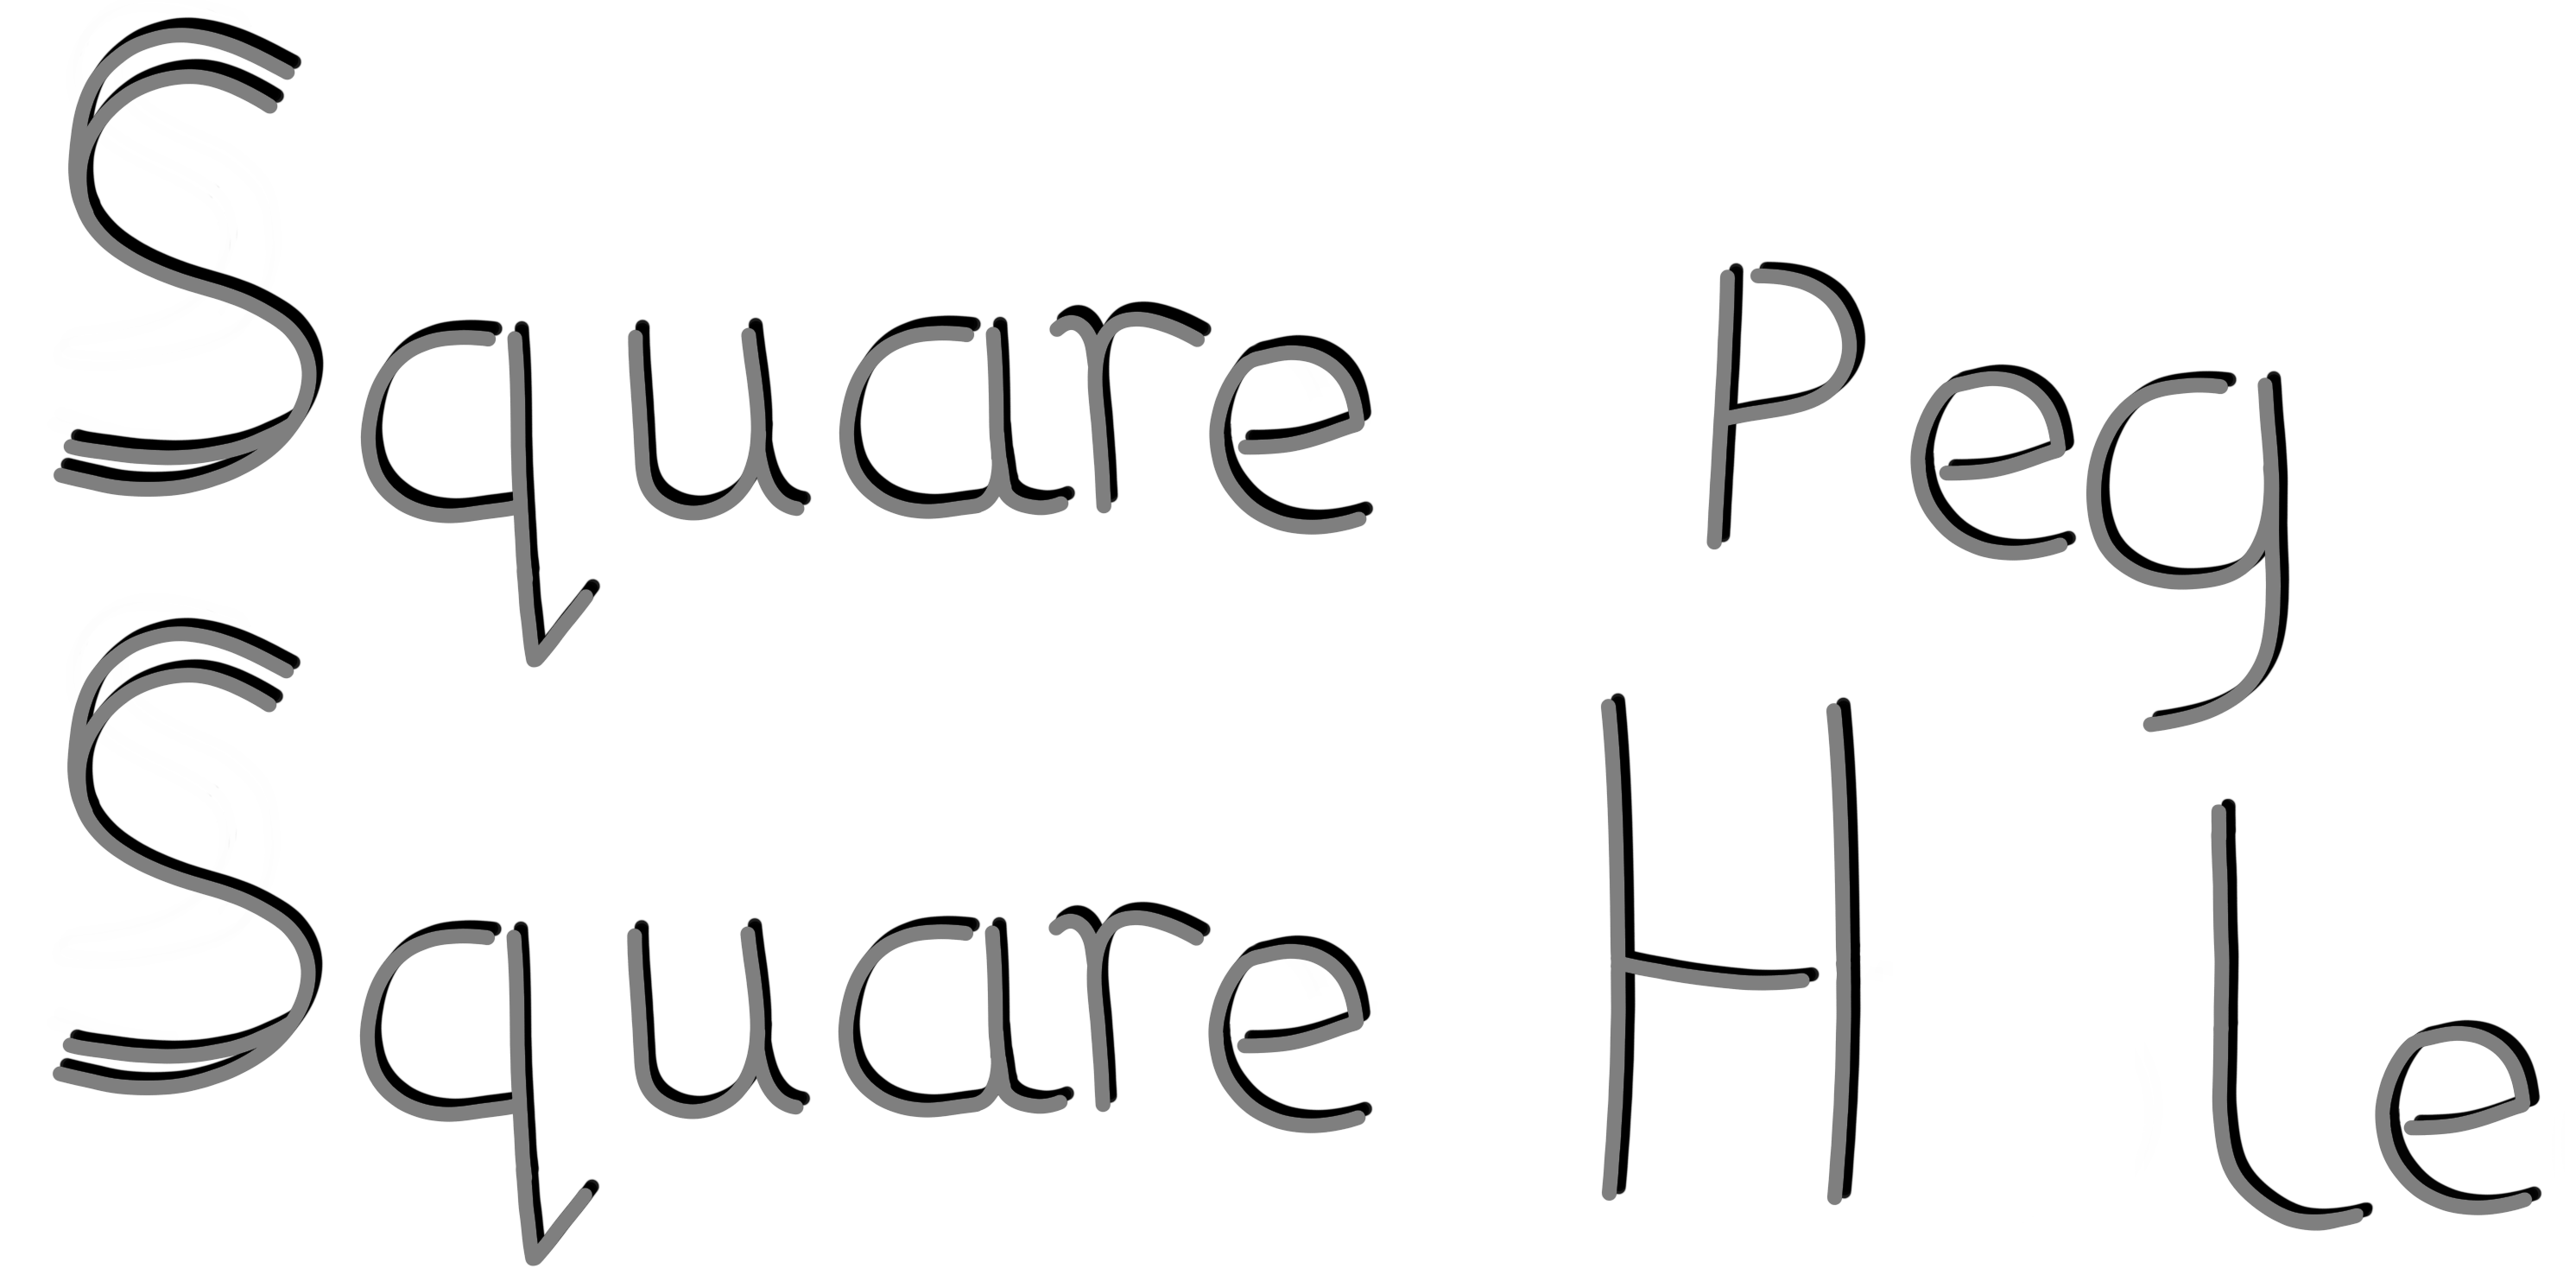 Square Peg
Square H le